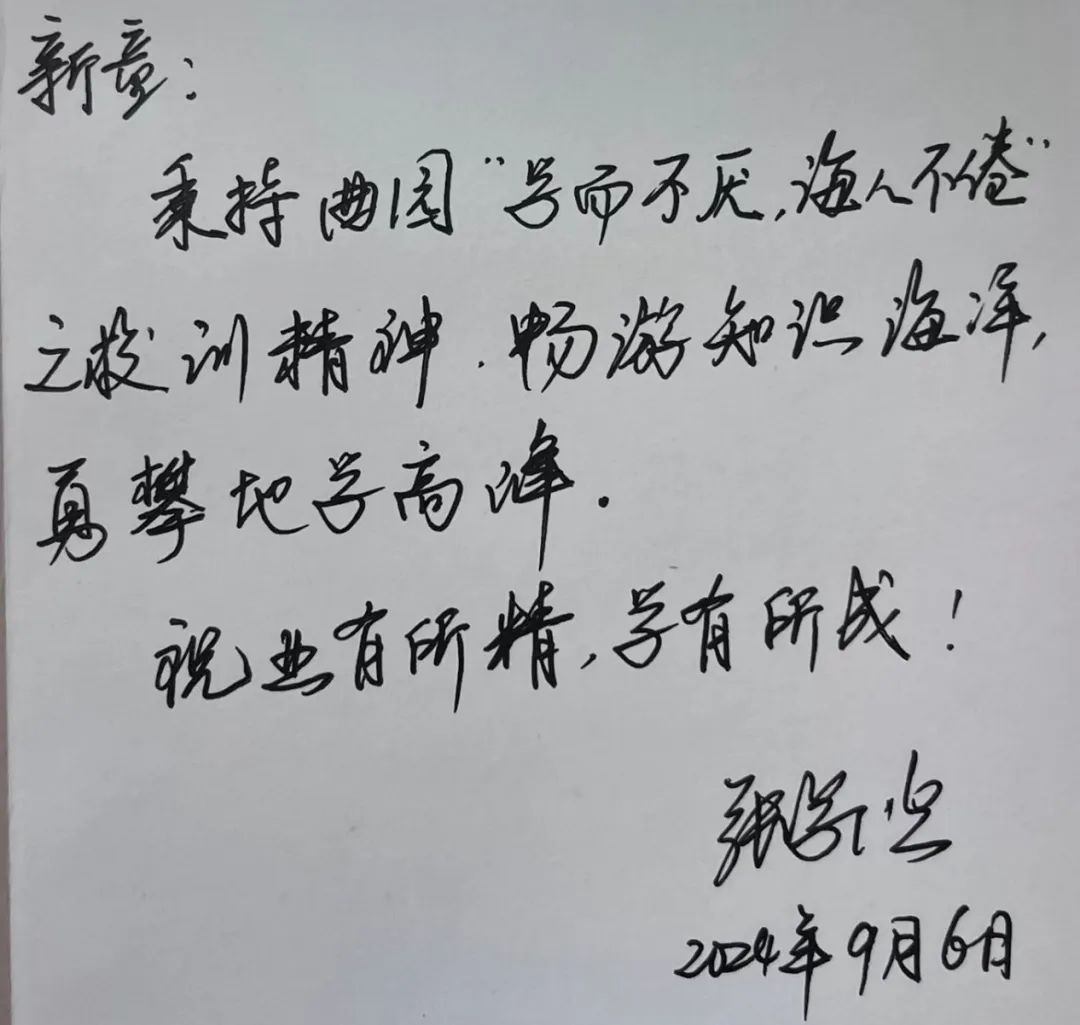 新童：
秉持曲园“学而不厌，诲人不倦”
之校训精神，畅游知识海洋，
勇攀地学高峰．
祝业有所精，学有所成！
张学
2024年9月6日